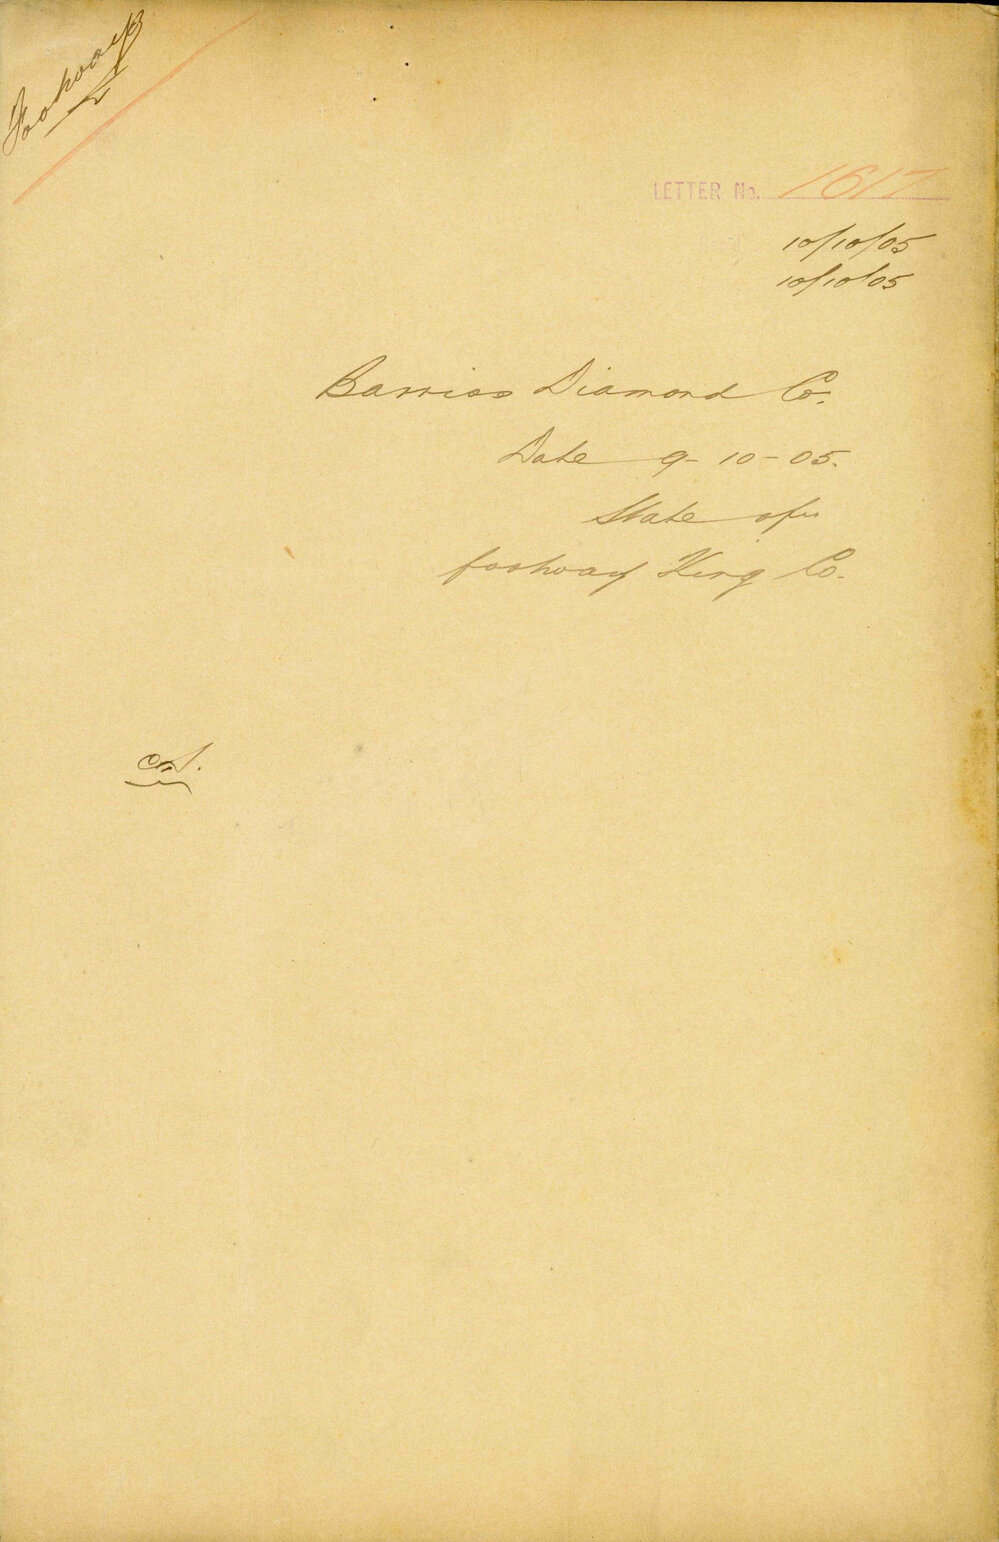 Footways
LETTER No. 1617
10/10/05
10/10/05
Diamond Co.
Date 9-10-05.
State of
footway King Co.